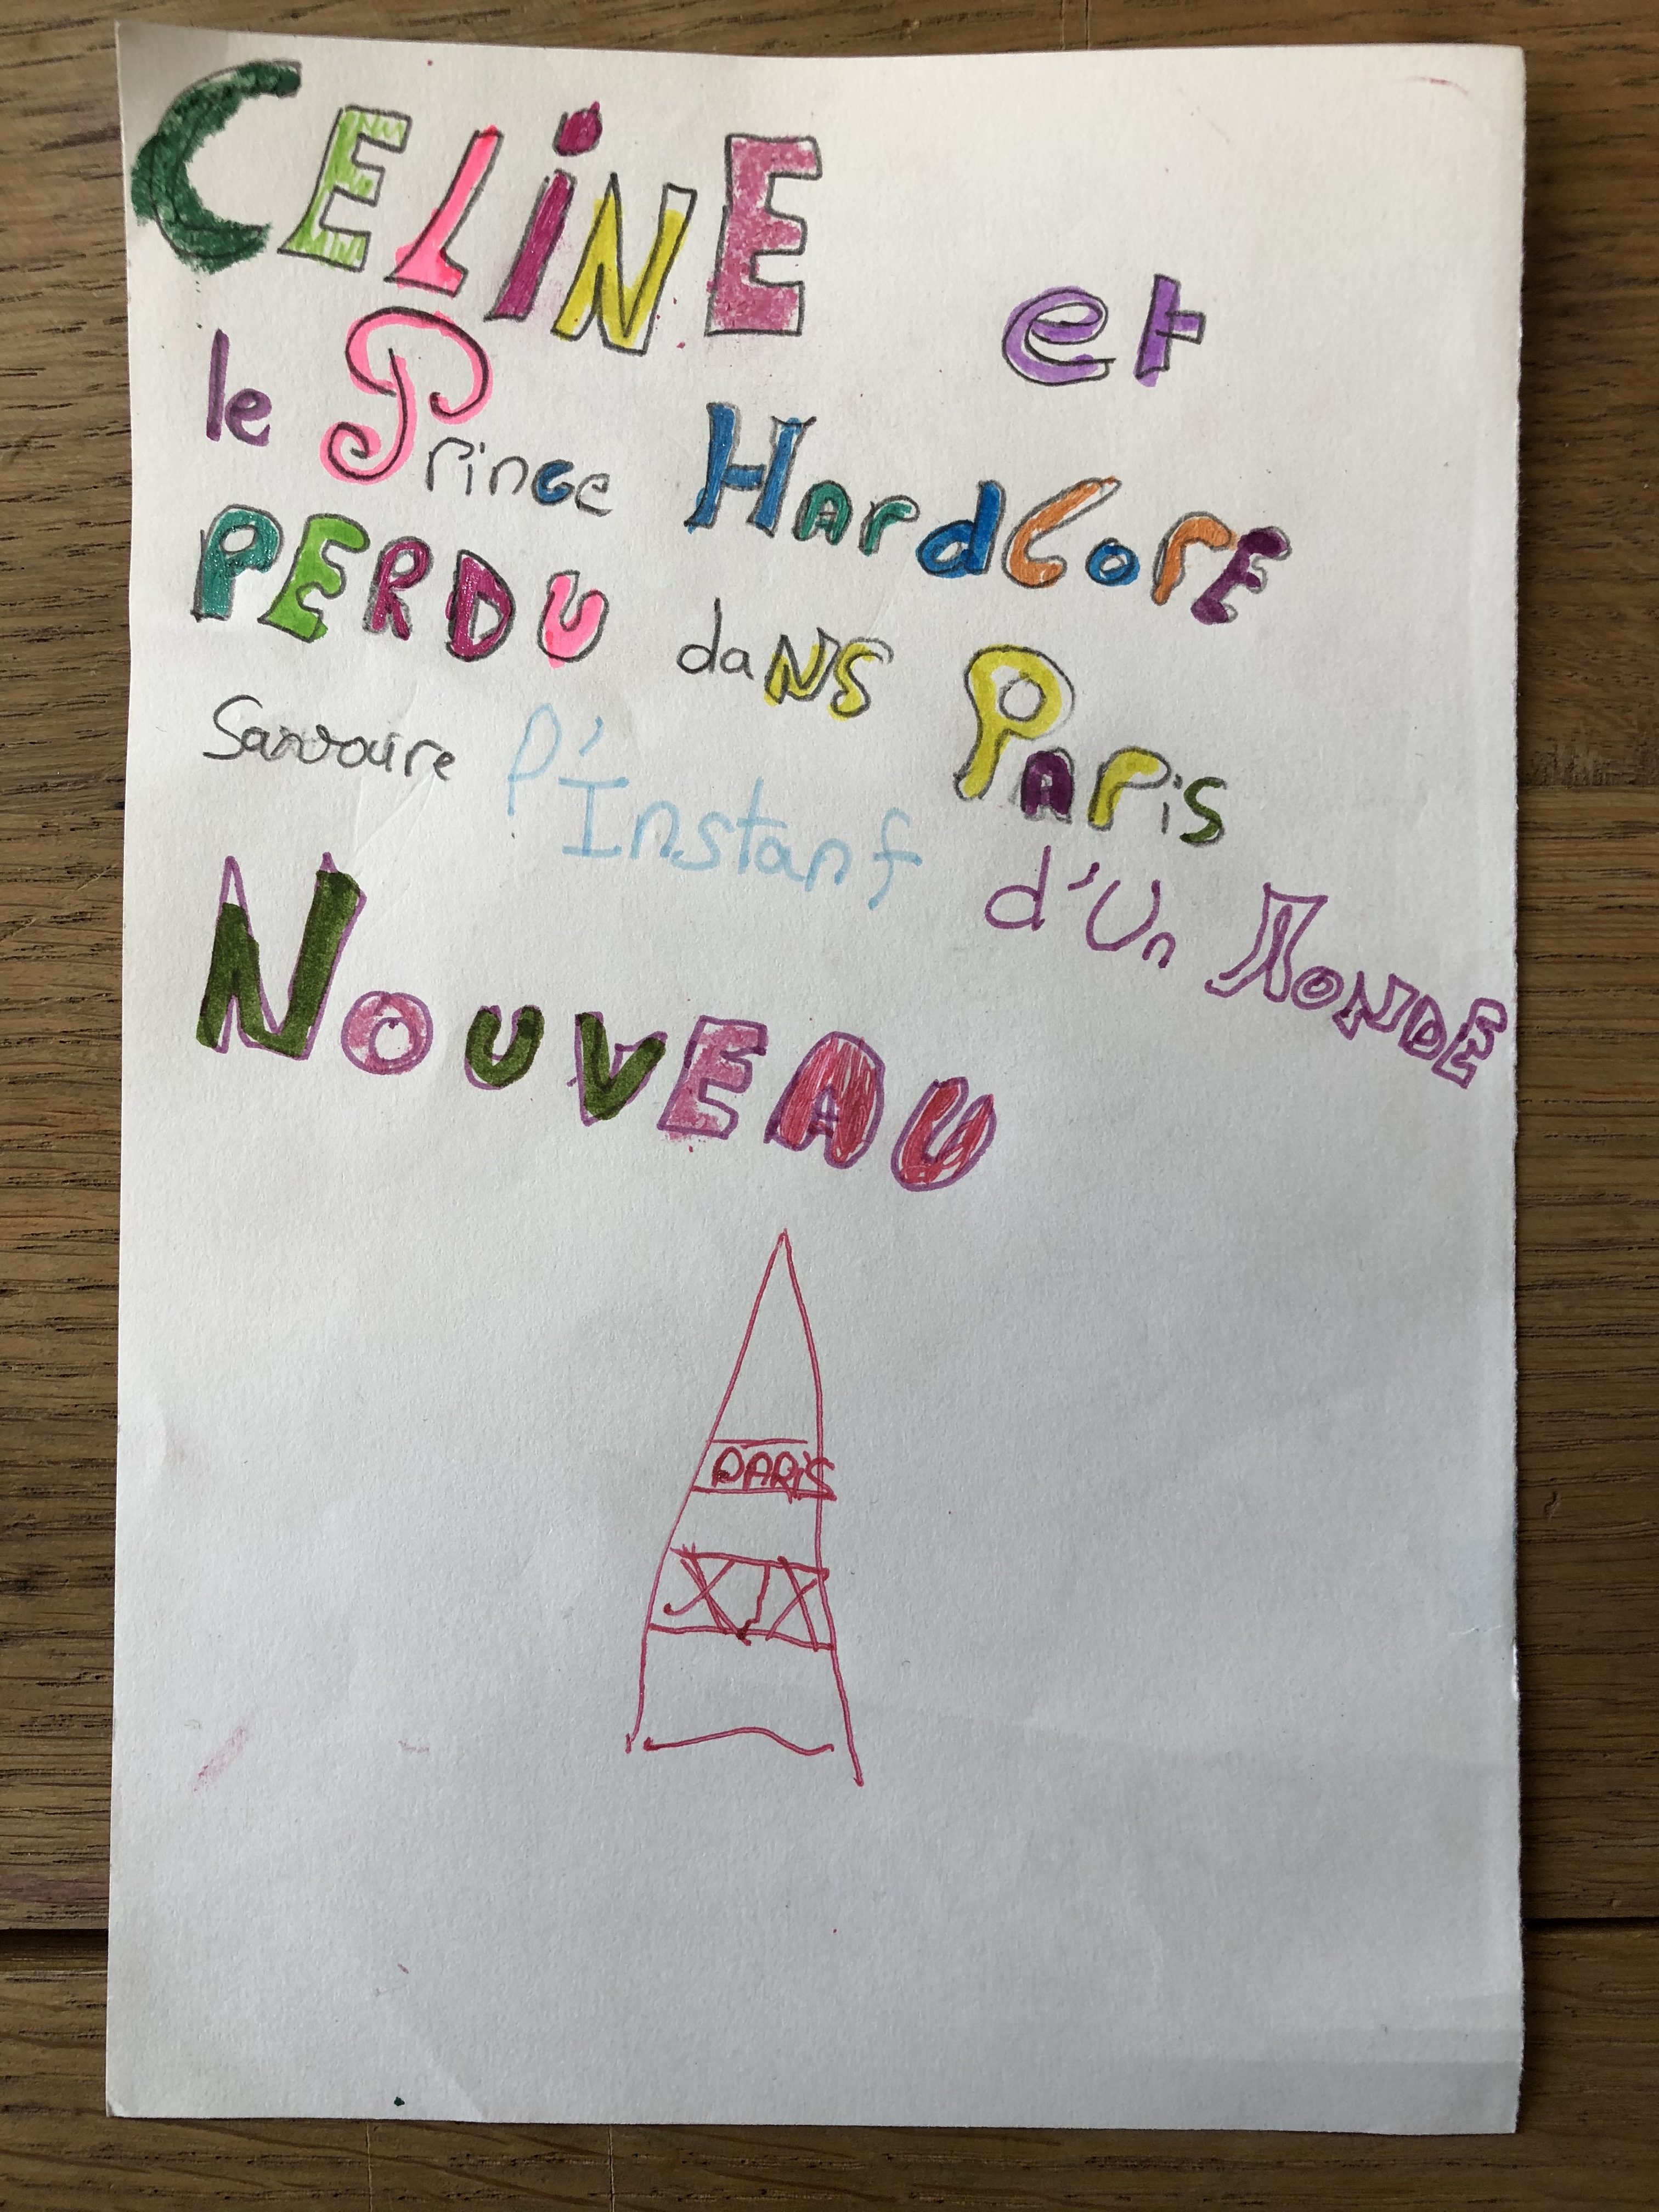 CELiNE et
le Prince HardCorE
PERDU daNS PARiS
Savoure l'Instant d'Un MONDE
NOUVEAU
PARiS
XIX